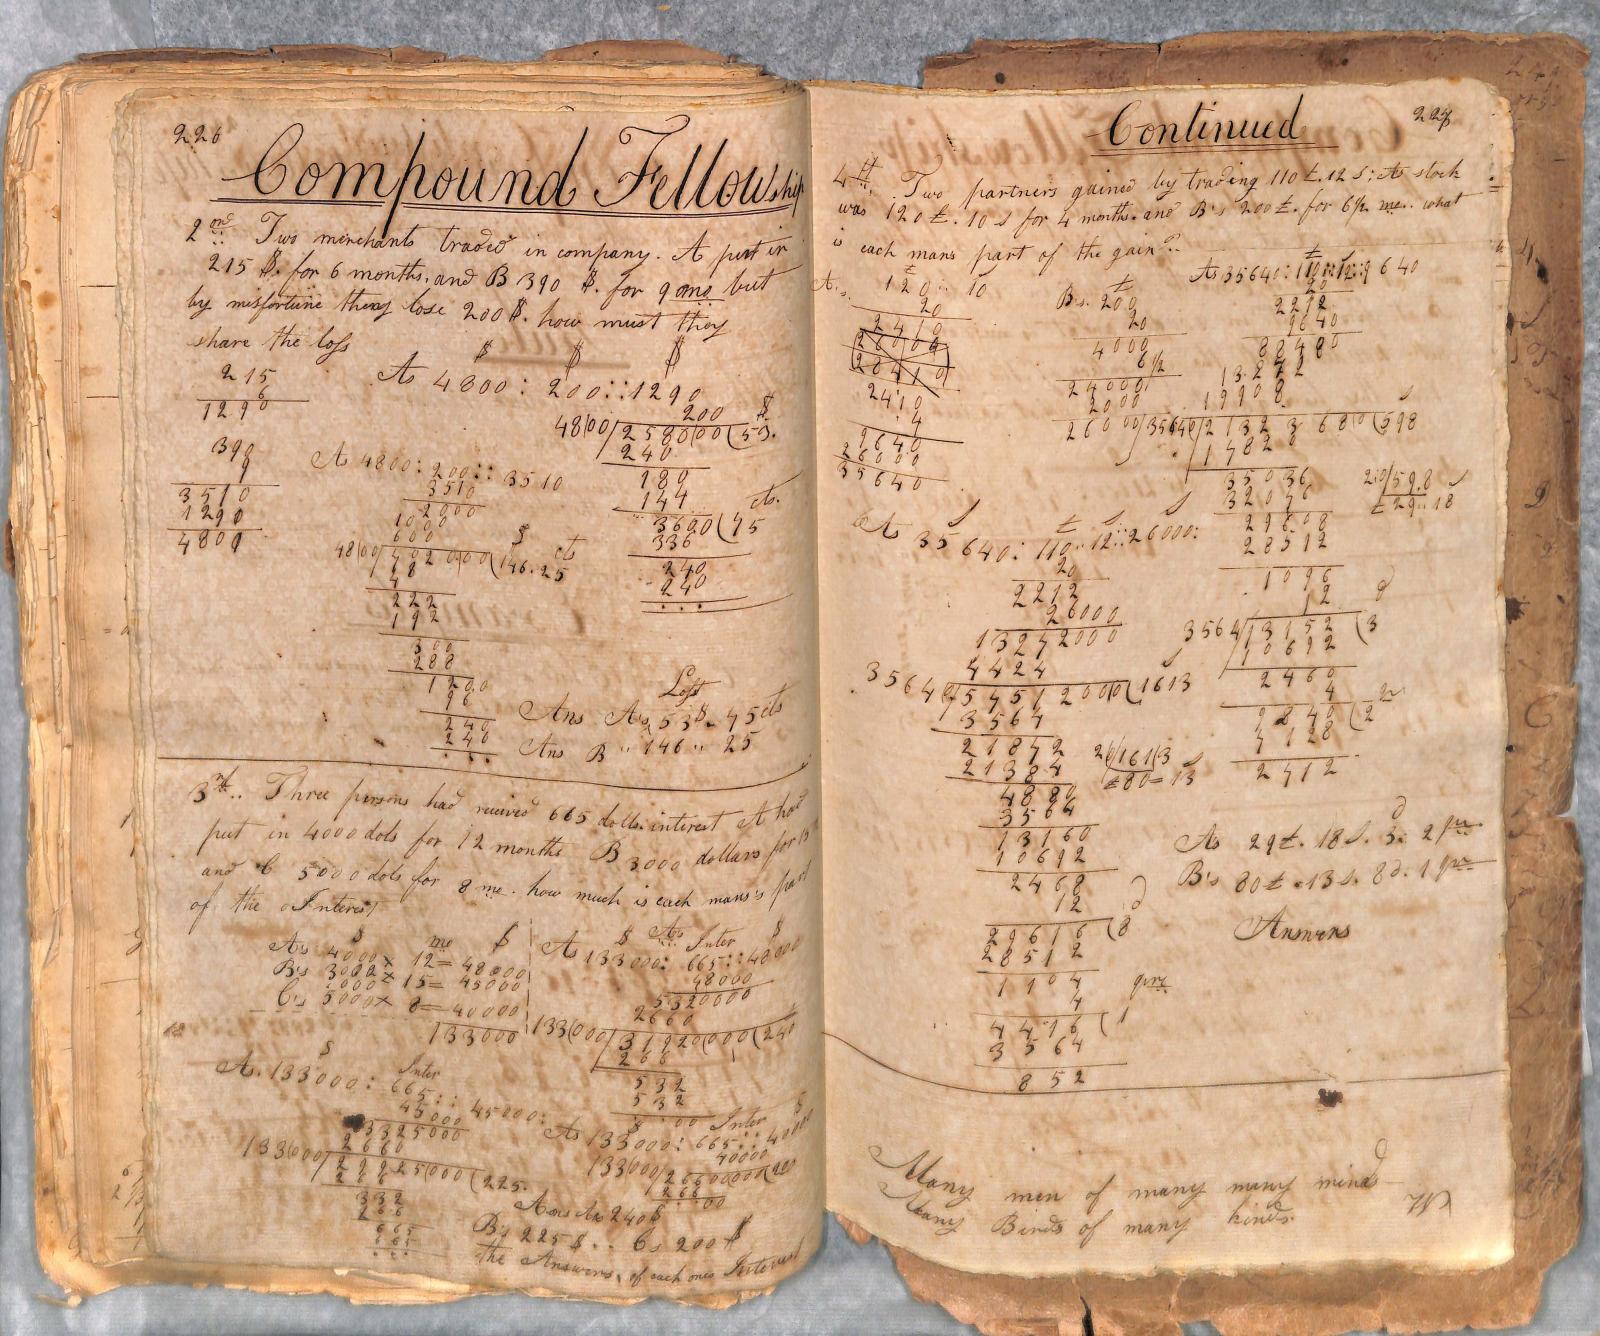 226
Compound Fellowship
2nd Two merchants traded in company. A put in
215 $. for 6 months. and B 390 $. for 9 mo but
by misfortune they lose 200 $. how must they
share the loss
215
6
1290
390
9
3510
1290
4800
$ $ $
As 4800 : 200 :: 1290
200 $
48|00/2580|00(53.
240
180
144 cts.
3600(75
336
240
240
...
As 4800 : 200 :: 3510
3510
2000
1000
600 $ cts
48|00/7020|00(146.25
48
222
192
300
288
120.0
96
240
240
...
Loss
Ans As 53$. 75 cts
Ans B " 146 " 25
3rd.. Three persons had received 665 dolls. interest A had
put in 4000 dols for 12 months B 3000 dollars for 15
and C 5000 dols for 8 mo. how much is each mans's part
of the Interest
$ mo $
As 4000 x 12 = 48000
B's 3000 x 15 = 45000
C's 5000 x 8 = 40000
133000
$ As Inter $
As 133000 : 665 :: 48000
48000
5320000
2660
133|000/31920|000(240
266
532
532
00
$ Inter
As 133000 : 665 :: 45000:
45000
3325000
2660
133|000/29925|000(225.
266
332
266
665
665
...
Inter $
As 133000 : 665 :: 40000
40000
133|000/26600|000(200
266
00
Ans As 240 $
B's 225 $ .. C's 200 $
the Answers, of each ones Interest
Continued
227
4th. Two partners gained by trading 110 £. 12 s : As stock
was 120 £. 10 s for 4 months. and B's 200 £. for 6 1/2 mo.. what
is each mans part of the gain?
A's. 120 :: 10
20
2410
2410
4
9640
26000
35640
£
B's. 200
20
4000
6 1/2
24000
2000
26000
As 35640 : 110 :: 12 :: 9640
20
2212
9640
88480
13272
19908
3564|0/2132368|0(598
1782
35036
32076
29608
28512
1096
12 d
3564/13152(3
10692
2460
4
9840(2 qr
7128
2712
2|0/59.8
£ 29 :: 18
As 35640 : 110 :: 12 :: 26000:
20
2212
26000
13272000
4424
3564|0/5751200|0(1613
3564
21872
21384
4880
3564
13160
10692
2468
12 d
29616(8
28512
1104 qrs
4
4416(1
3564
852
2|0/161|3
£80 = 13
As 29 £. 18 s. 3. 2 qrs
B's 80 £. 13 s. 8 d. 1 qr
Answers
Many men of many many minds
Many Birds of many kinds.